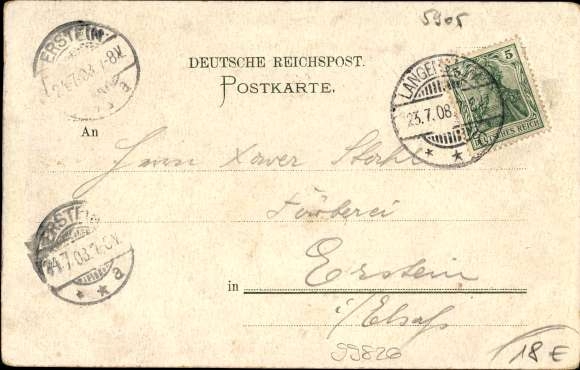 5905
DEUTSCHE REICHSPOST.
POSTKARTE.
ERSTEIN
24.7.08. 7-8V.
a
LANGEN
23.7.08.
* *
5
DEUTSCHES REICH
An
Herrn Xaver Stahl
Färberei
ERSTEIN
24.7.08. 7-8V.
* * a
in Erstein
i/Elsaß
99826
18 E